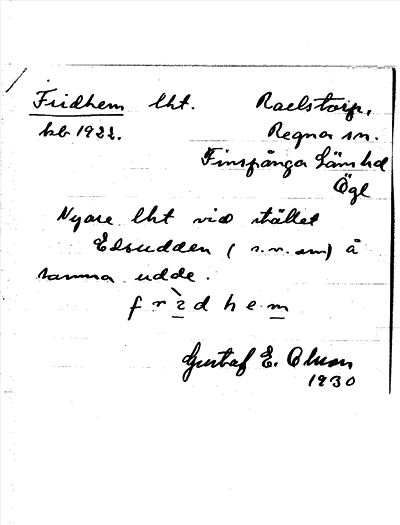 Fridhem lht. Raelstorp,
kb 1922. Regna sn.
Finspånga läns hd
Ögl
Nyare lht vid stället
Edsudden (s.n. om) å
samma udde.
f r i d h e m
Gustaf E. Olsson
1930